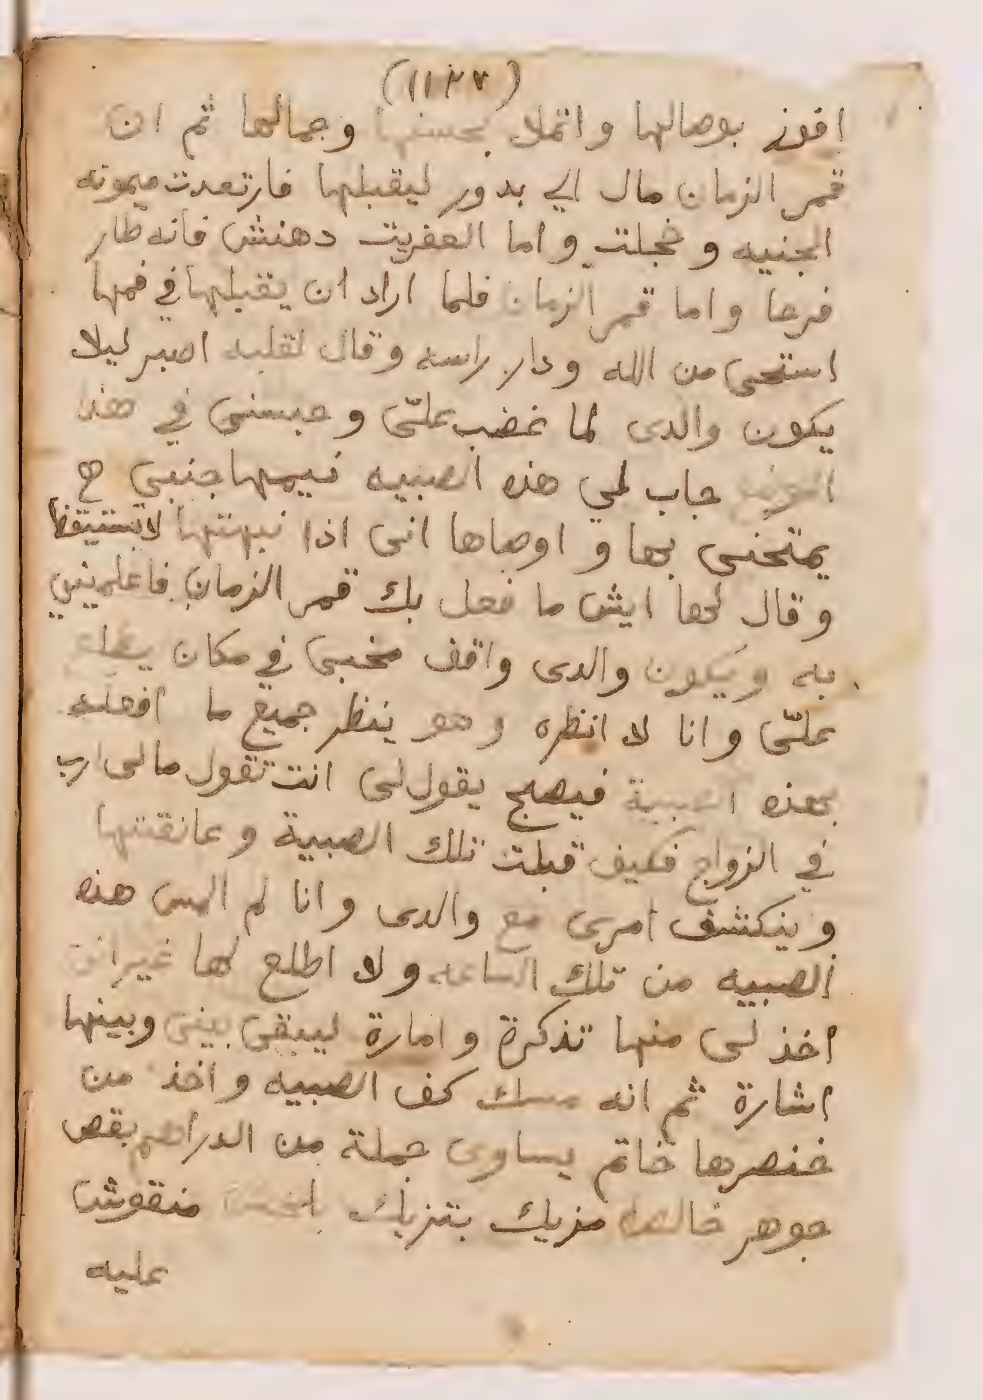 (١١٢٧)
افوز بوصالها واتملا بحسنها وجمالها ثم ان
قمر الزمان مال الي بدور ليقبلها فارتعدت ميمونه
الجنيه وخجلت واما العفريت دهنش فانه طار
فرحا واما قمر الزمان فلما اراد ان يقبلها في فمها
استحى من الله ودار راسه وقال لقلبه اصبر ليلا
يكون والدى لما غضب علىّ وحبسنى في هذا
جاب لي هذه الصبيه نيمها جنبي ح
يمتحنى بها و اوصاها انى اذا نبهتها لا تستيقظ
وقال لها ايش ما فعل بك قمر الزمان فاعلميني
به ويكون والدى واقف مخبى في مكان
علىّ وانا لا انظره وهو ينظر جميع ما افعله
بهذه الصبية فيصبح يقول لى انت تقول مالى ارب
في الزواج فكيف قبلت تلك الصبية وعانقتها
وينكشف امرى مع والدى وانا لم المس هذه
الصبيه من تلك الساعه ولا اطلع لها غير انى
اخذ لى منها تذكرة وامارة ليبقى بينى وبينها
اشارة ثم انه مسك كف الصبيه واخذ من
خنصرها خاتم يساوى جملة من الدراهم بفص
جوهر خالص مزيك بتزيك منقوش
عليه